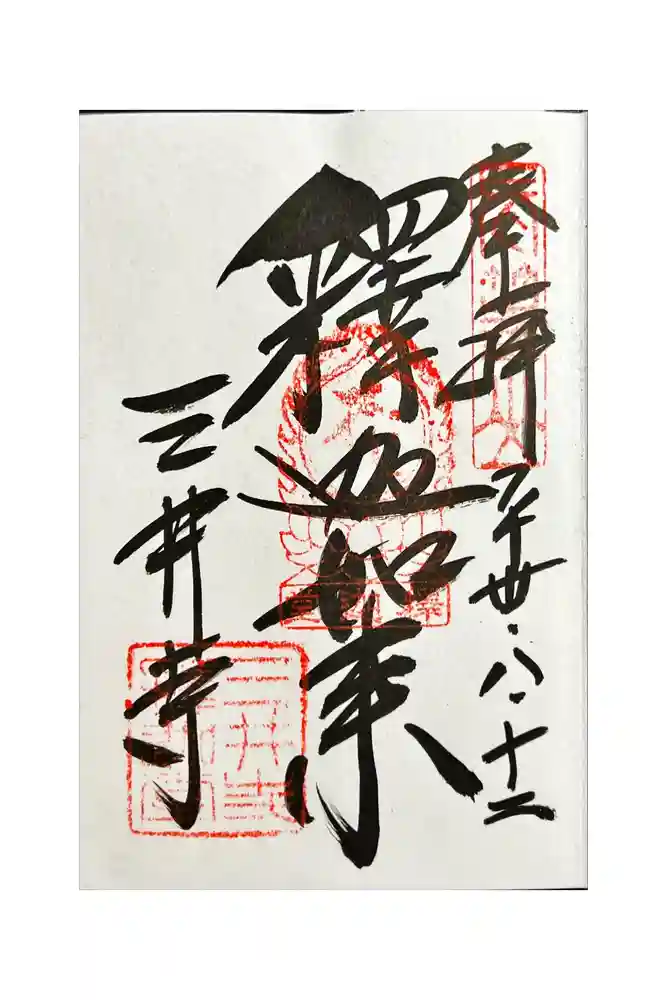 奉拝
平丗・八・十二
釋迦如来
三井寺
三井寺